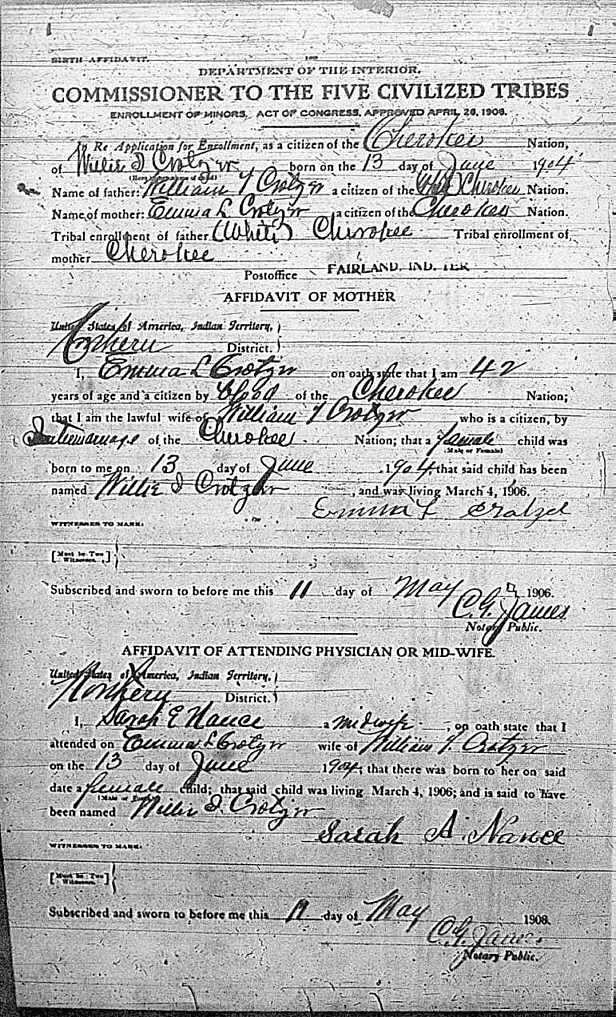 BIRTH AFFIDAVIT.
DEPARTMENT OF THE INTERIOR.
COMMISSIONER TO THE FIVE CIVILIZED TRIBES
ENROLLMENT OF MINORS, ACT OF CONGRESS, APPROVED APRIL 26, 1906.
Re Application for Enrollment, as a citizen of the Cherokee Nation,
of Willie I Crotzer born on the 13 day of June 1904
Name of father: William T Crotzer a citizen of the Cherokee Nation.
Name of mother: Emma L Crotzer a citizen of the Cherokee Nation.
Tribal enrollment of father (White) Cherokee Tribal enrollment of
mother Cherokee
Postoffice FAIRLAND, IND. TER
AFFIDAVIT OF MOTHER
United States of America, Indian Territory,
Northern District.
I, Emma L Crotzer on oath state that I am 42
years of age and a citizen by blood of the Cherokee Nation;
that I am the lawful wife of William T Crotzer who is a citizen, by
Intermarriage of the Cherokee Nation; that a female child was
(Male or Female)
born to me on 13 day of June, 1904 that said child has been
named Willie I Crotzer, and was living March 4, 1906.
Emma L Crotzer
WITNESSES TO MARK:
[Must be Two Witnesses.]
Subscribed and sworn to before me this 11 day of May 1906.
C.G. James
Notary Public.
AFFIDAVIT OF ATTENDING PHYSICIAN OR MID-WIFE.
United States of America, Indian Territory,
Northern District.
I, Sarah E Nance a midwife, on oath state that I
attended on Emma L Crotzer wife of William T Crotzer
on the 13 day of June 1904, that there was born to her on said
date a female child; that said child was living March 4, 1906; and is said to have
been named Willie I Crotzer
Sarah A. Nance
WITNESSES TO MARK:
[Must be Two Witnesses.]
Subscribed and sworn to before me this 11 day of May 1906.
C.G. James
Notary Public.